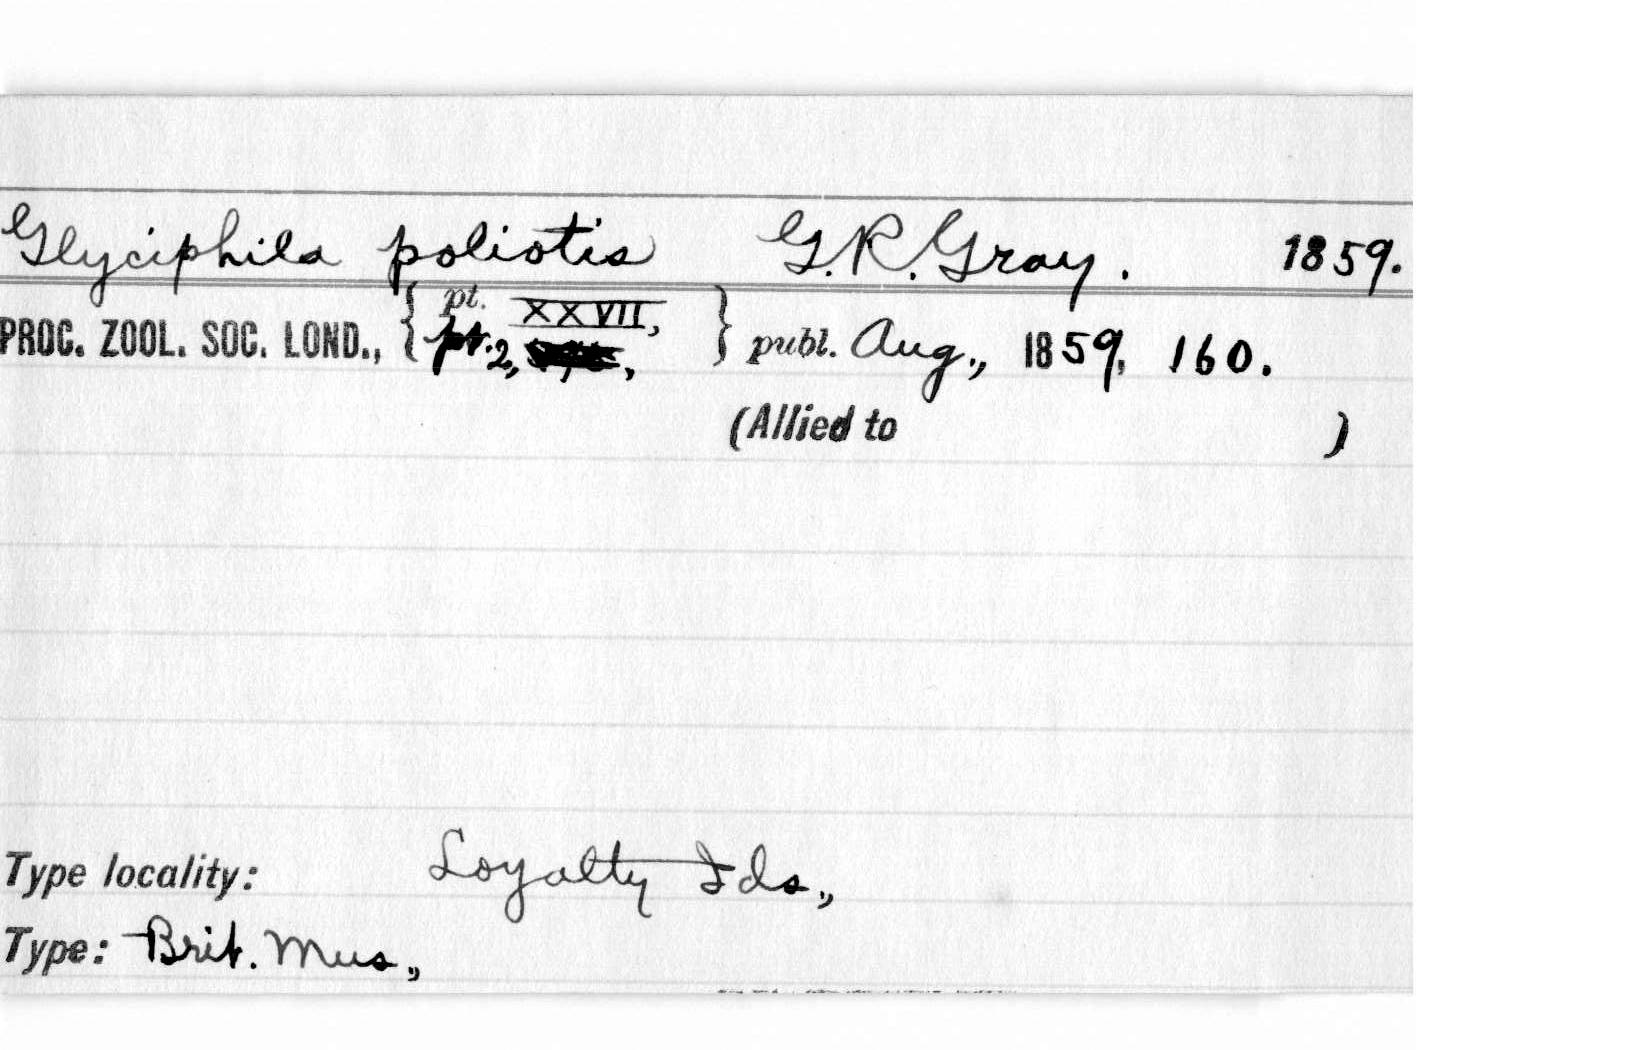 Glyciphila poliotis G.R.Gray. 1859.
PROC. ZOOL. SOC. LOND., { pt. XXVII, pt. 2, } publ. Aug., 1859, 160.
(Allied to )
Type locality: Loyalty Ids.,
Type: Brit. Mus.,